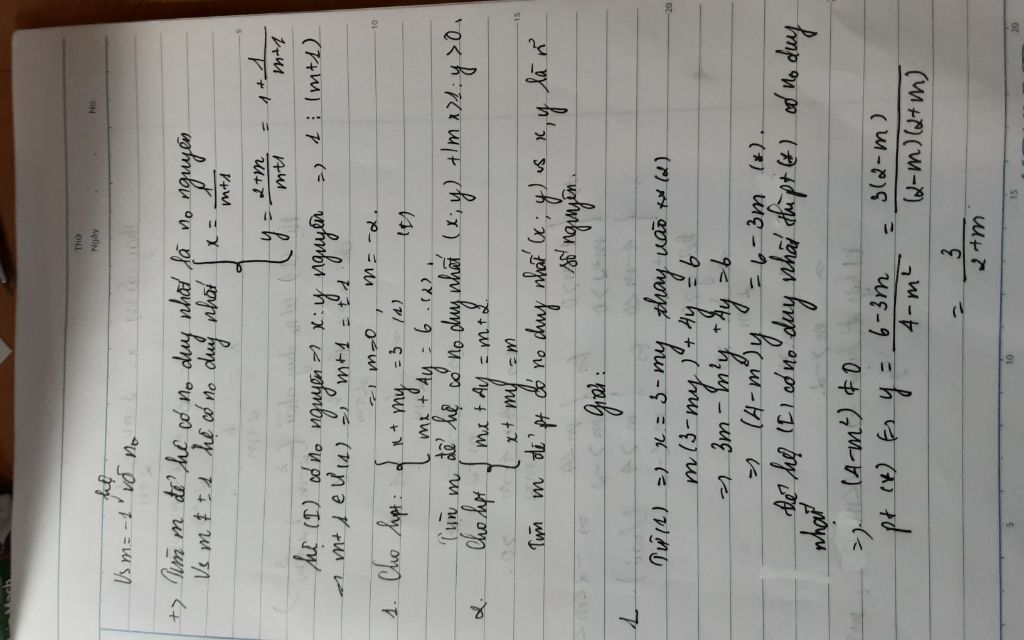 Thứ
Ngày
No.
Vs m = -1 hệ vô n₀
+> Tìm m để hệ có n₀ duy nhất là n₀ nguyên
Vs m ≠ ± 1 hệ có n₀ duy nhất { x = 1/(m+1)
y = (2+m)/(m+1) = 1 + 1/(m+1)
hệ (I) có n₀ nguyên => x; y nguyên => 1 ⋮ (m+1)
=> m+1 ∈ Ư(1) => m+1 = ± 1
=> m=0, m=-2.
1. Cho hpt: { x + my = 3 (1) (I)
mx + 4y = 6 (2)
Tìm m để hệ có n₀ duy nhất (x; y) t/m x>1; y>0.
2. Cho hpt { mx + 4y = m+2
x + my = m
Tìm m để pt có n₀ duy nhất (x; y) vs x, y là n
số nguyên.
Giải:
1
Từ (1) => x = 3 - my thay vào (2)
m(3 - my) + 4y = 6
=> 3m - m²y + 4y = 6
=> (4 - m²)y = 6 - 3m (*).
Để hệ (I) có n₀ duy nhất thì pt (*) có n₀ duy
nhất
=> (4-m²) ≠ 0
pt (*) (=) y = (6-3m)/(4-m²) = 3(2-m)/((2-m)(2+m))
= 3/(2+m)
5
10
15
20
5
10
15
20